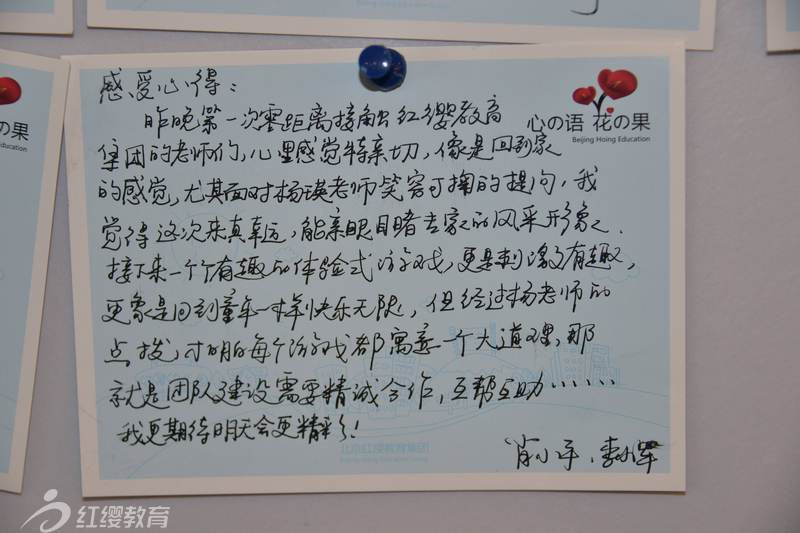 感受心得：
昨晚第一次零距离接触红缨教育
集团的老师们，心里感觉特亲切，像是回到家
的感觉，尤其面对杨瑛老师笑容可掬的提问，我
觉得这次来真幸运，能亲眼目睹专家的风采形象。
接下来一个个有趣的体验式游戏，更是刺激又有趣，
更象是回到童年一样快乐无限，但经过杨老师的
点拨，才明白每个游戏都寓意一个大道理，那
就是团队建设需要精诚合作，互帮互助……
我更期待明天会更精彩！
肖小平、李小军
心の语 花の果
Beijing Hoing Education
北京红缨教育集团
Beijing Hoing Education Group
红缨教育